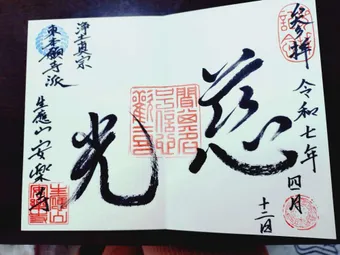 参拝
令和七年
四月
十二日
慈
光
浄土真宗
東本願寺派
生應山 安樂寺